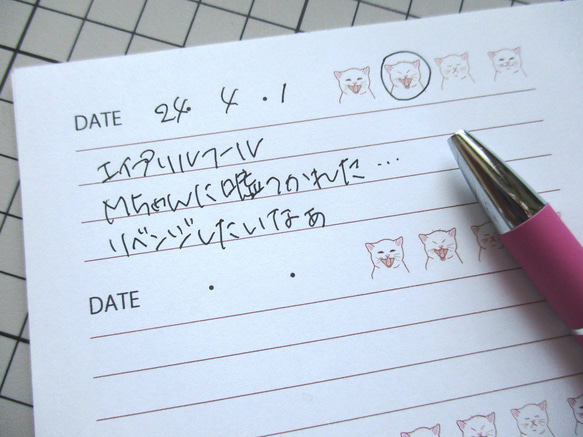 DATE 24. 4 . 1
エイプリルフール
Mちゃんに嘘つかれた…
リベンジしたいなぁ
DATE . .